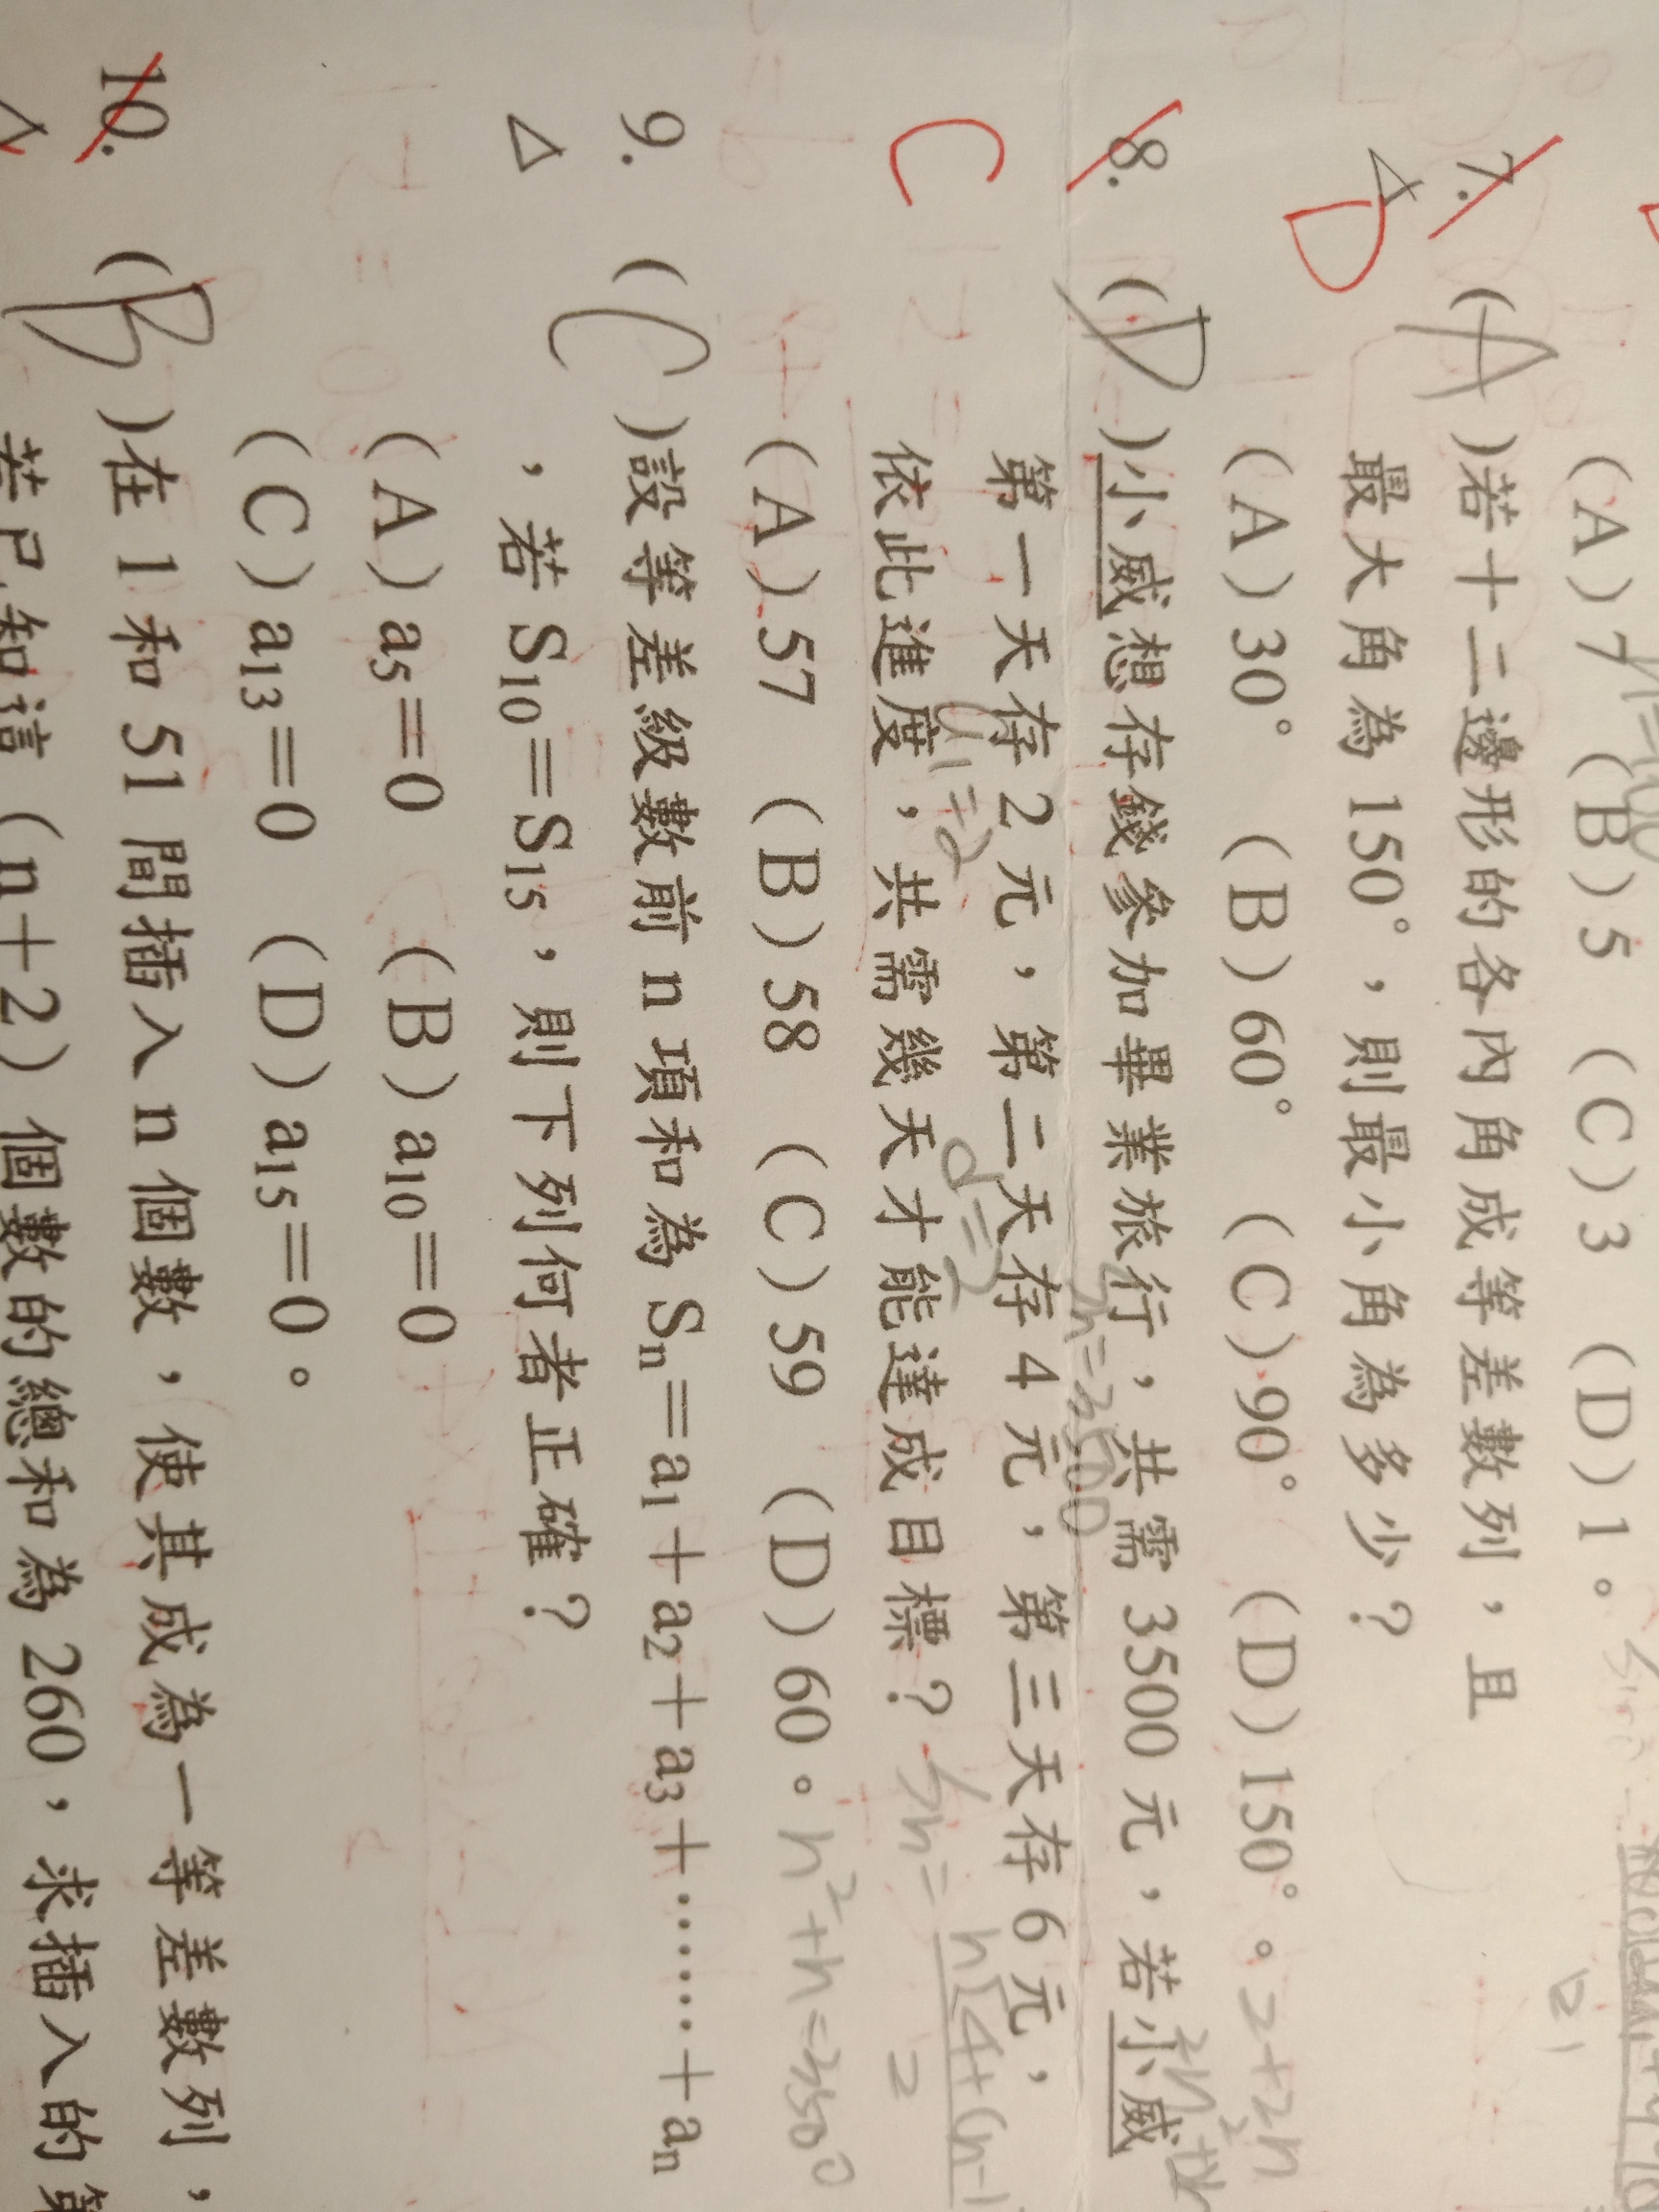 (A)7 (B)5 (C)3 (D)1。
7. (A)若十二邊形的各內角成等差數列，且
△ D 最大角為 150°，則最小角為多少？
(A)30° (B)60° (C)90° (D)150°。 2+2n
8. (D)小威想存錢參加畢業旅行，共需 3500 元，若小威
第一天存 2 元，第二天存 4 元，第三天存 6 元，
C 依此進度，共需幾天才能達成目標？
a1=2 d=2
Sn=
2
(A)57 (B)58 (C)59 (D)60。 n²+n=3500
9. (C)設等差級數前 n 項和為 Sn=a1+a2+a3+……+an
△ ，若 S10=S15，則下列何者正確？
(A)a5=0 (B)a10=0
(C)a13=0 (D)a15=0。
10. (B)在 1 和 51 間插入 n 個數，使其成為一等差數列，
若已知這（n＋2）個數的總和為 260，求插入的第